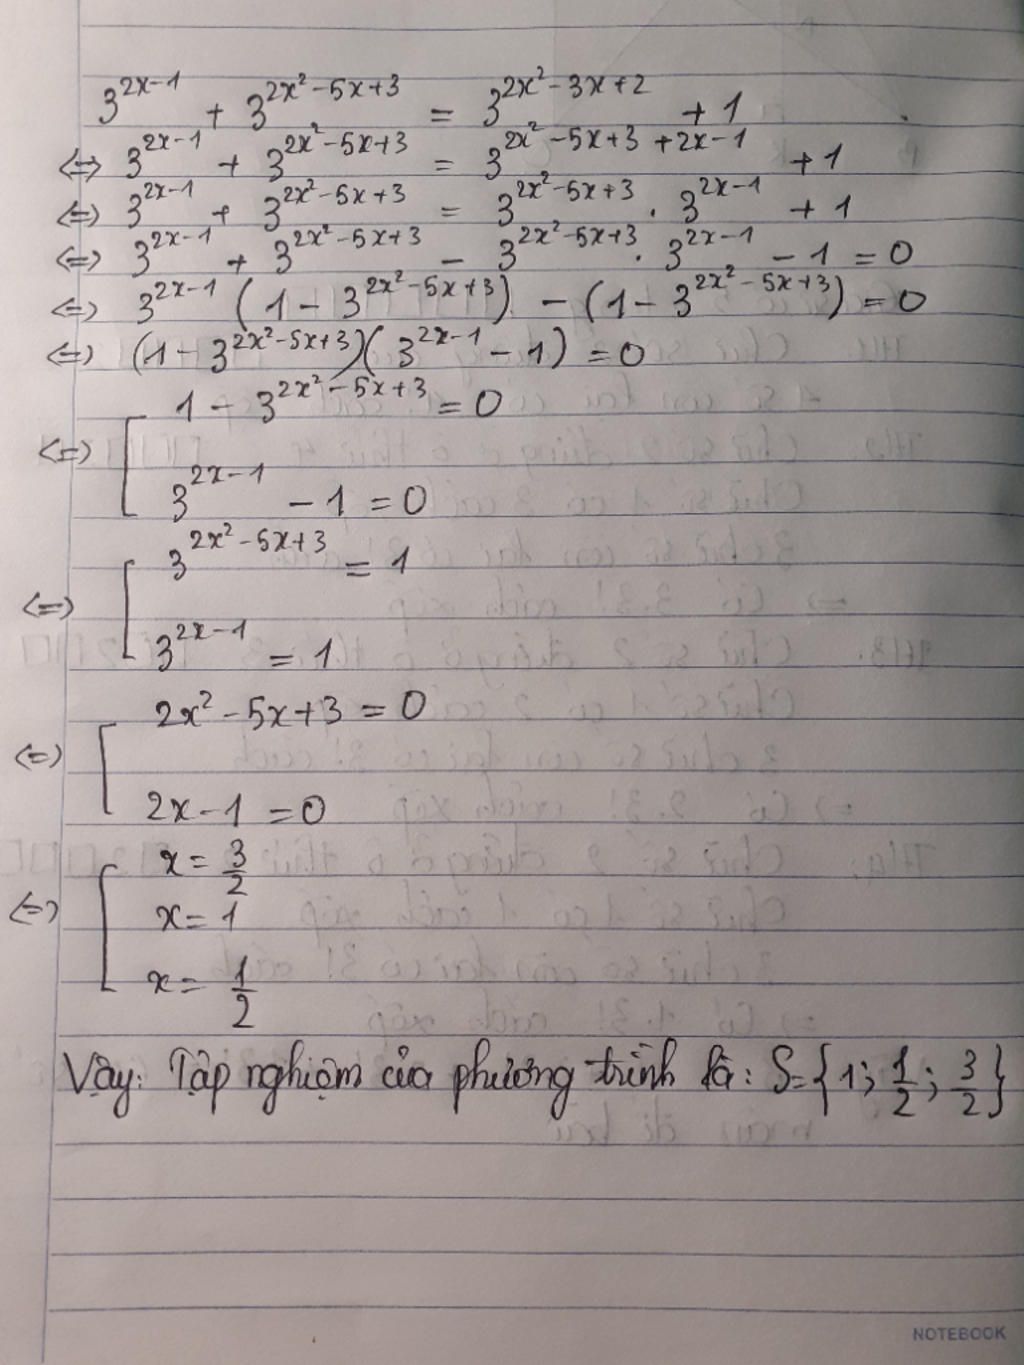 3^{2x-1} + 3^{2x²-5x+3} = 3^{2x²-3x+2} + 1
<=> 3^{2x-1} + 3^{2x²-5x+3} = 3^{2x²-5x+3+2x-1} + 1
<=> 3^{2x-1} + 3^{2x²-5x+3} = 3^{2x²-5x+3} . 3^{2x-1} + 1
<=> 3^{2x-1} + 3^{2x²-5x+3} - 3^{2x²-5x+3} . 3^{2x-1} - 1 = 0
<=> 3^{2x-1} (1 - 3^{2x²-5x+3}) - (1 - 3^{2x²-5x+3}) = 0
<=> (1 - 3^{2x²-5x+3})(3^{2x-1} - 1) = 0
<=> [ 1 - 3^{2x²-5x+3} = 0
3^{2x-1} - 1 = 0
<=> [ 3^{2x²-5x+3} = 1
3^{2x-1} = 1
<=> [ 2x² - 5x + 3 = 0
2x - 1 = 0
<=> [ x = 3/2
x = 1
x = 1/2
Vậy: Tập nghiệm của phương trình là: S = {1; 1/2; 3/2}
NOTEBOOK